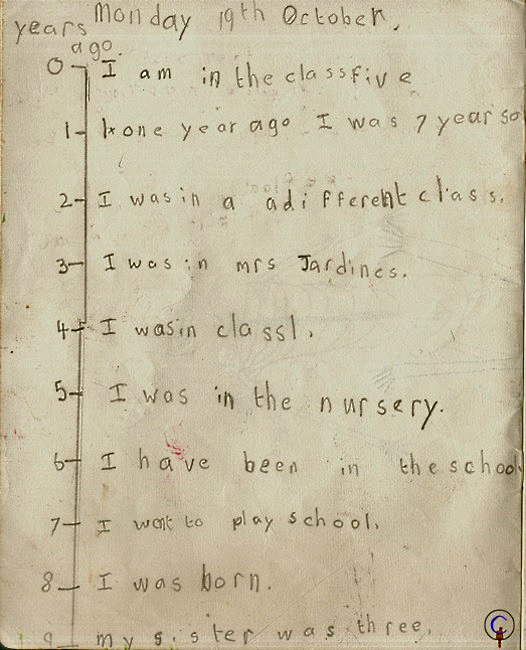 Monday 19th October.
years
ago.
0 I am in the classfive
1 one year ago I was 7 years o
2 I was in a adifferent class.
3 I was in mrs Jardines.
4 I was in class1.
5 I was in the nursery.
6 I have been in the school
7 I went to play school.
8 I was born.
9 my sister was three.